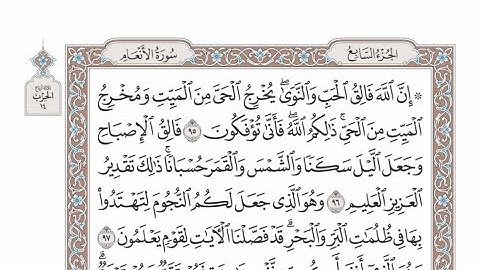 الجزء السابع
سورة الأنعام
الحزب
١٤
۞ إِنَّ ٱللَّهَ فَالِقُ ٱلْحَبِّ وَٱلنَّوَىٰۖ يُخْرِجُ ٱلْحَىَّ مِنَ ٱلْمَيِّتِ وَمُخْرِجُ
ٱلْمَيِّتِ مِنَ ٱلْحَىِّۚ ذَٰلِكُمُ ٱللَّهُۖ فَأَنَّىٰ تُؤْفَكُونَ ٩٥ فَالِقُ ٱلْإِصْبَاحِ
وَجَعَلَ ٱلَّيْلَ سَكَنًا وَٱلشَّمْسَ وَٱلْقَمَرَ حُسْبَانًاۚ ذَٰلِكَ تَقْدِيرُ
ٱلْعَزِيزِ ٱلْعَلِيمِ ٩٦ وَهُوَ ٱلَّذِى جَعَلَ لَكُمُ ٱلنُّجُومَ لِتَهْتَدُوا۟
بِهَا فِى ظُلُمَٰتِ ٱلْبَرِّ وَٱلْبَحْرِۗ قَدْ فَصَّلْنَا ٱلْءَايَٰتِ لِقَوْمٍ يَعْلَمُونَ ٩٧